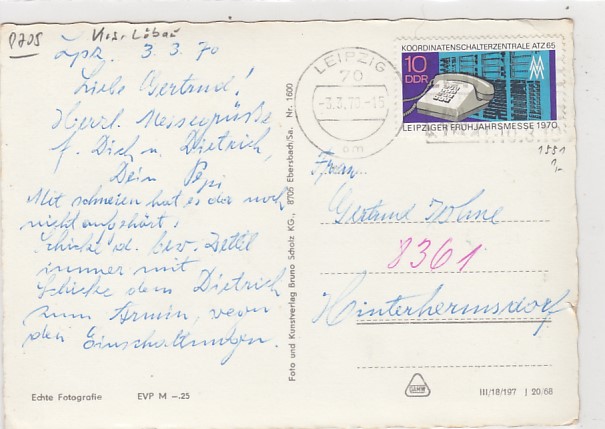 P705 Löbau
Lpz. 3.3.70
Liebe Gertrud!
Herzl. Messegrüße
f. Dich u. Dietrich,
Dein
Mit schneien hat es da noch
nicht aufgehört!
Schicke d. Dettel
immer mit
Schicke dem Dietrich
zum Armin, wenn
den Einschaltungen.
Echte Fotografie EVP M –.25
Foto und Kunstverlag Bruno Scholz KG., 8705 Ebersbach/Sa. Nr. 1600
LEIPZIG
70
-3.3.70-15
om
KOORDINATENSCHALTERZENTRALE ATZ 65
10
DDR
MM
LEIPZIGER FRÜHJAHRSMESSE 1970
1551
Frau
Gertrud
8361
Hinterhermsdorf
III/18/197 | 20/68